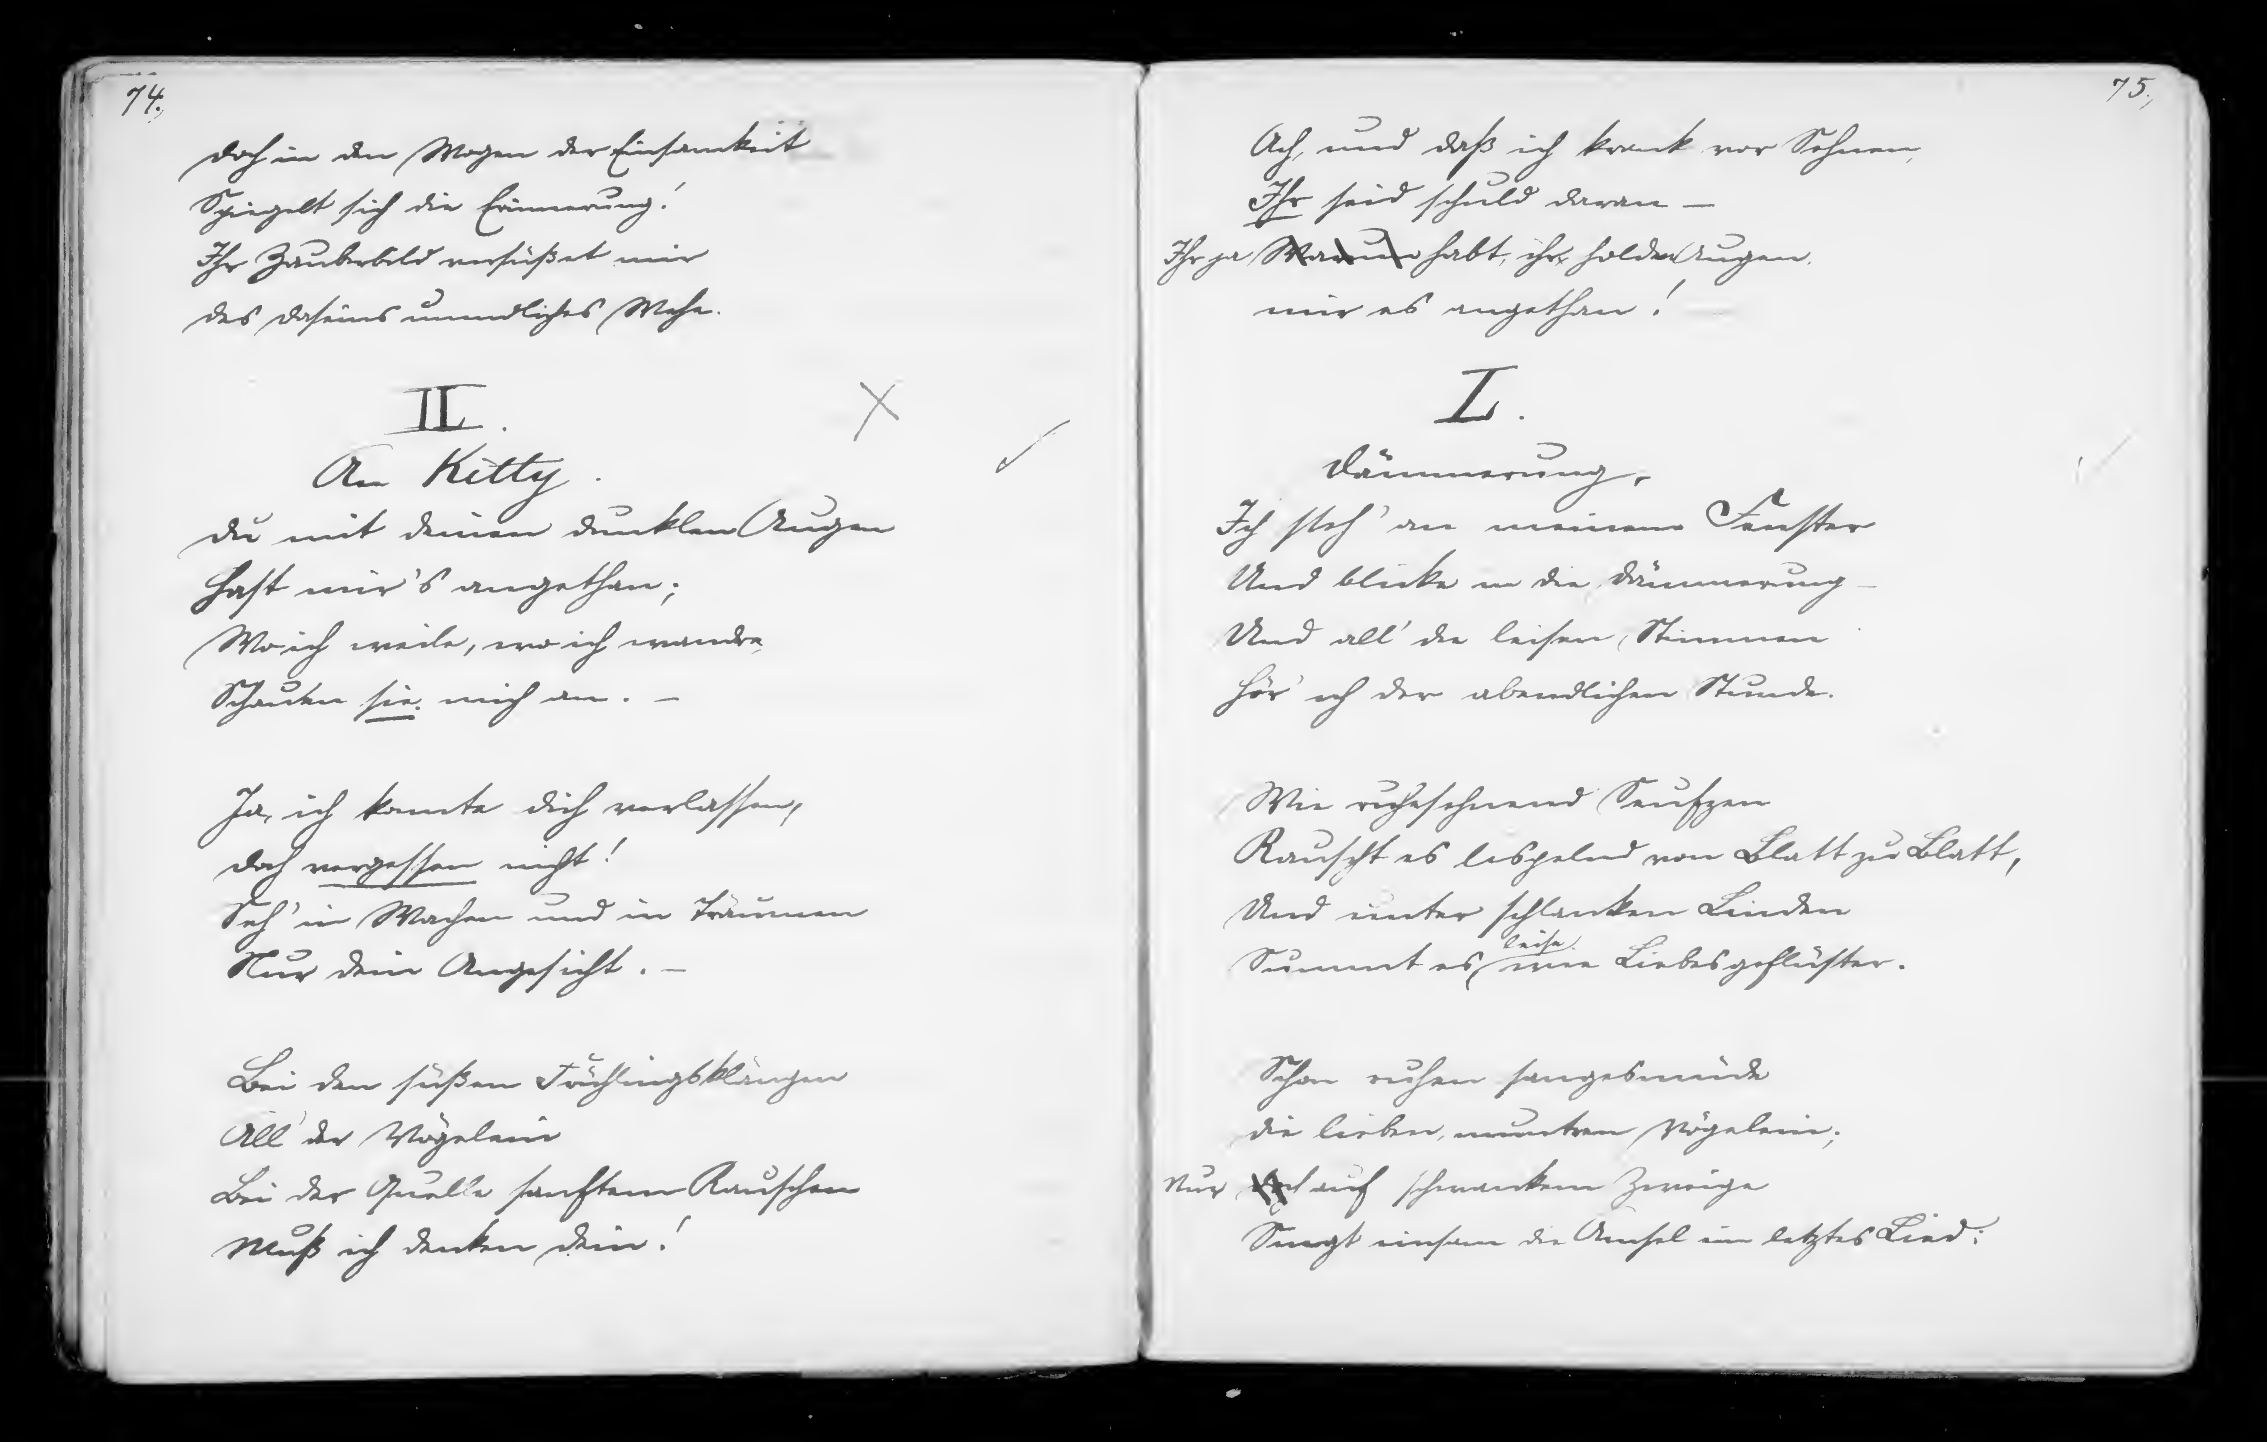 74.,
Doch in den Wogen der Einsamkeit
Spiegelt sich die Erinnerung!
Ihr Zauberbild versüßet mir
Des Daseins unendliches Wehe.
IL.
An Kitty.
Du mit deinen dunklen Augen
Hast mir's angethan;
Wo ich weile, wo ich wandre,
Schauten sie mich an. –
Ja, ich konnte dich verlassen,
Doch vergessen nicht!
Seh' in Wachen und in Träumen
Nur dein Angesicht. –
Bei den süßen Frühlingsklängen
All' der Vögelein
Bei der Quelle sanftem Rauschen
Muß ich denken dein!
75.,
Ach, und daß ich krank vor Sehnen,
Ihr seid schuld daran –
Ihr ja Warum habt, ihr holden Augen,
mir es angethan!
L.
Dämmerung.
Ich steh' an meinem Fenster
Und blicke in die Dämmerung –
Und all' die leisen Stimmen
Hör' ich der abendlichen Stunde.
Wie ruhesehnend Seufzen
Rauscht es lispelnd von Blatt zu Blatt,
Und unter schlanken Linden
leise
Summt es, wie Liebesgeflüster.
Schon ruhen sangesmüde
Die lieben, muntren Vögelein;
Nur auf schwankem Zweige
Singt einsam die Amsel ein letztes Lied: